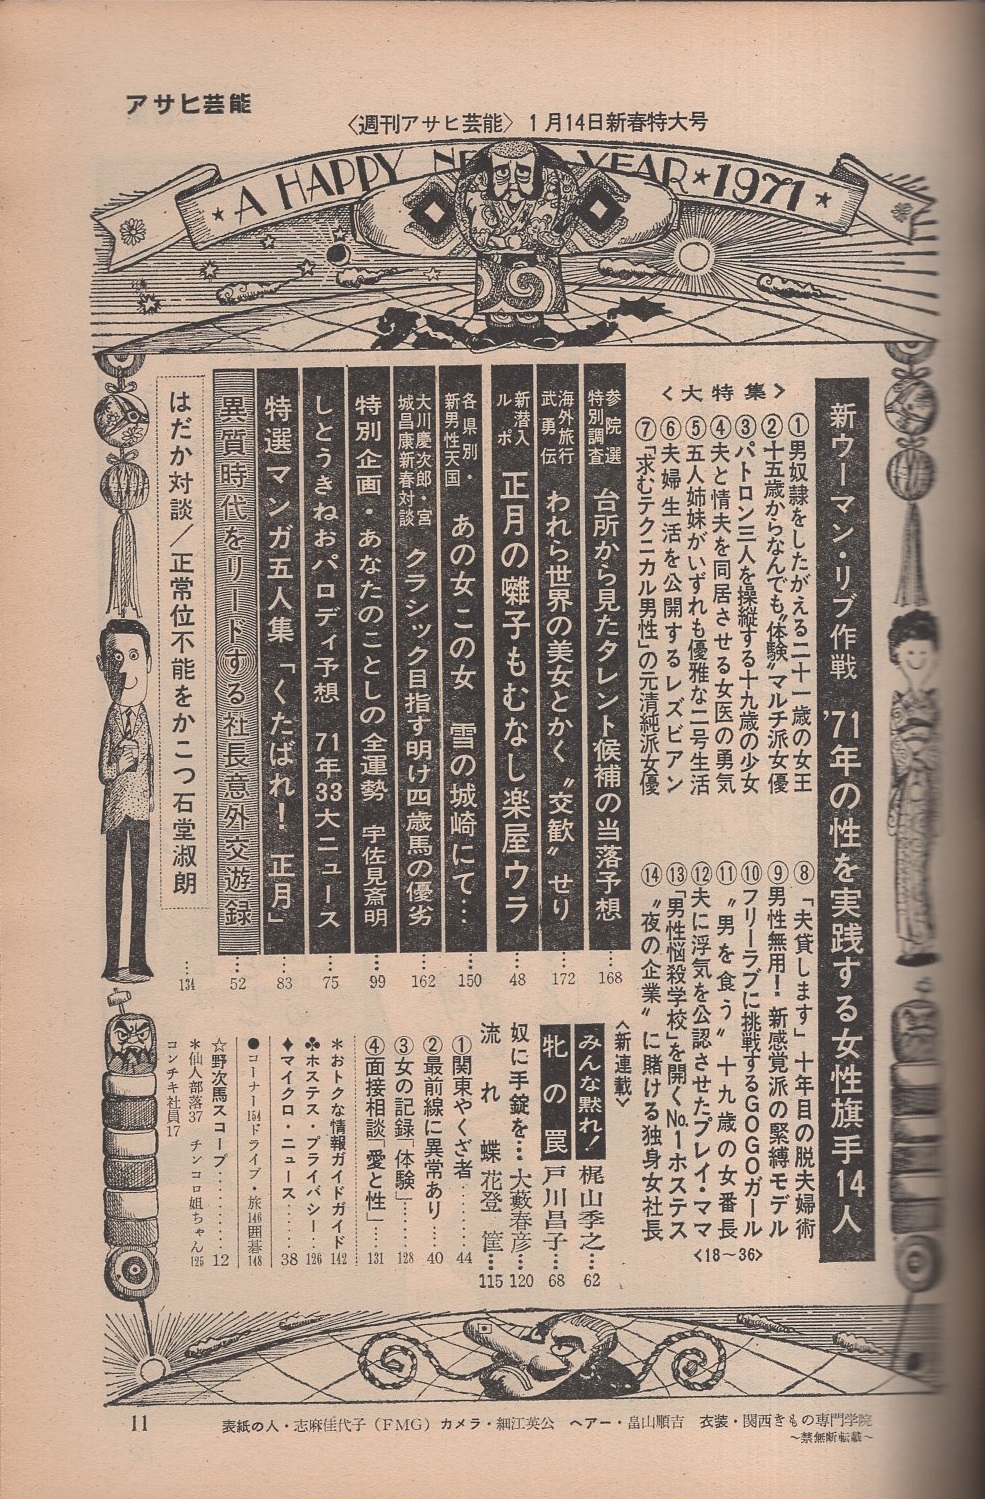 アサヒ芸能
〈週刊アサヒ芸能〉1月14日新春特大号
A HAPPY NE YEAR★1971★
新ウーマン・リブ作戦 '71年の性を実践する女性旗手14人
〈大特集〉
①男奴隷をしたがえる二十一歳の女王
②十五歳からなんでも“体験”マルチ派女優
③パトロン三人を操縦する十九歳の少女
④夫と情夫を同居させる女医の勇気
⑤五人姉妹がいずれも優雅な二号生活
⑥夫婦生活を公開するレズビアン
⑦「求むテクニカル男性」の元清純派女優
⑧「夫貸します」十年目の脱夫婦術
⑨男性無用！新感覚派の緊縛モデル
⑩フリーラブに挑戦するGOGOガール
⑪“男を食う”十九歳の女番長
⑫夫に浮気を公認させたプレイ・ママ
⑬「男性悩殺学校」を開くNo.1ホステス
⑭“夜の企業”に賭ける独身女社長
〈18～36〉
参院選特別調査 台所から見たタレント候補の当落予想…168
海外旅行武勇伝 われら世界の美女とかく“交歓”せり…172
新潜入ルポ 正月の囃子もむなし楽屋ウラ…48
各県別・新男性天国 あの女この女 雪の城崎にて……150
大川慶次郎・宮城昌康新春対談 クラシック目指す明け四歳馬の優劣…162
特別企画・あなたのことしの全運勢 宇佐見斎明…99
しとうきねおパロディ予想 71年33大ニュース…75
特選マンガ五人集「くたばれ！ 正月」…83
異質時代をリードする社長意外交遊録…52
はだか対談／正常位不能をかこつ石堂淑朗…134
〈新連載〉
みんな黙れ！ 梶山季之…62
牝の罠 戸川昌子…68
奴に手錠を… 大藪春彦…120
流れ 蝶 花登筐…115
①関東やくざ者………44
②最前線に異常あり……40
③女の記録「体験」……128
④面接相談「愛と性」……131
＊おトクな情報ガイドガイド 142
♣ホステス・プライバシー…126
♦マイクロ・ニュース……38
●コーナー154ドライブ・旅146囲碁148
☆野次馬スコープ………12
＊仙人部落37 チンコロ姐ちゃん125
コンチキ社員17
11
表紙の人・志麻佳代子（FMG）カメラ・細江英公 ヘアー・畠山順吉 衣装・関西きもの専門学院
～禁無断転載～